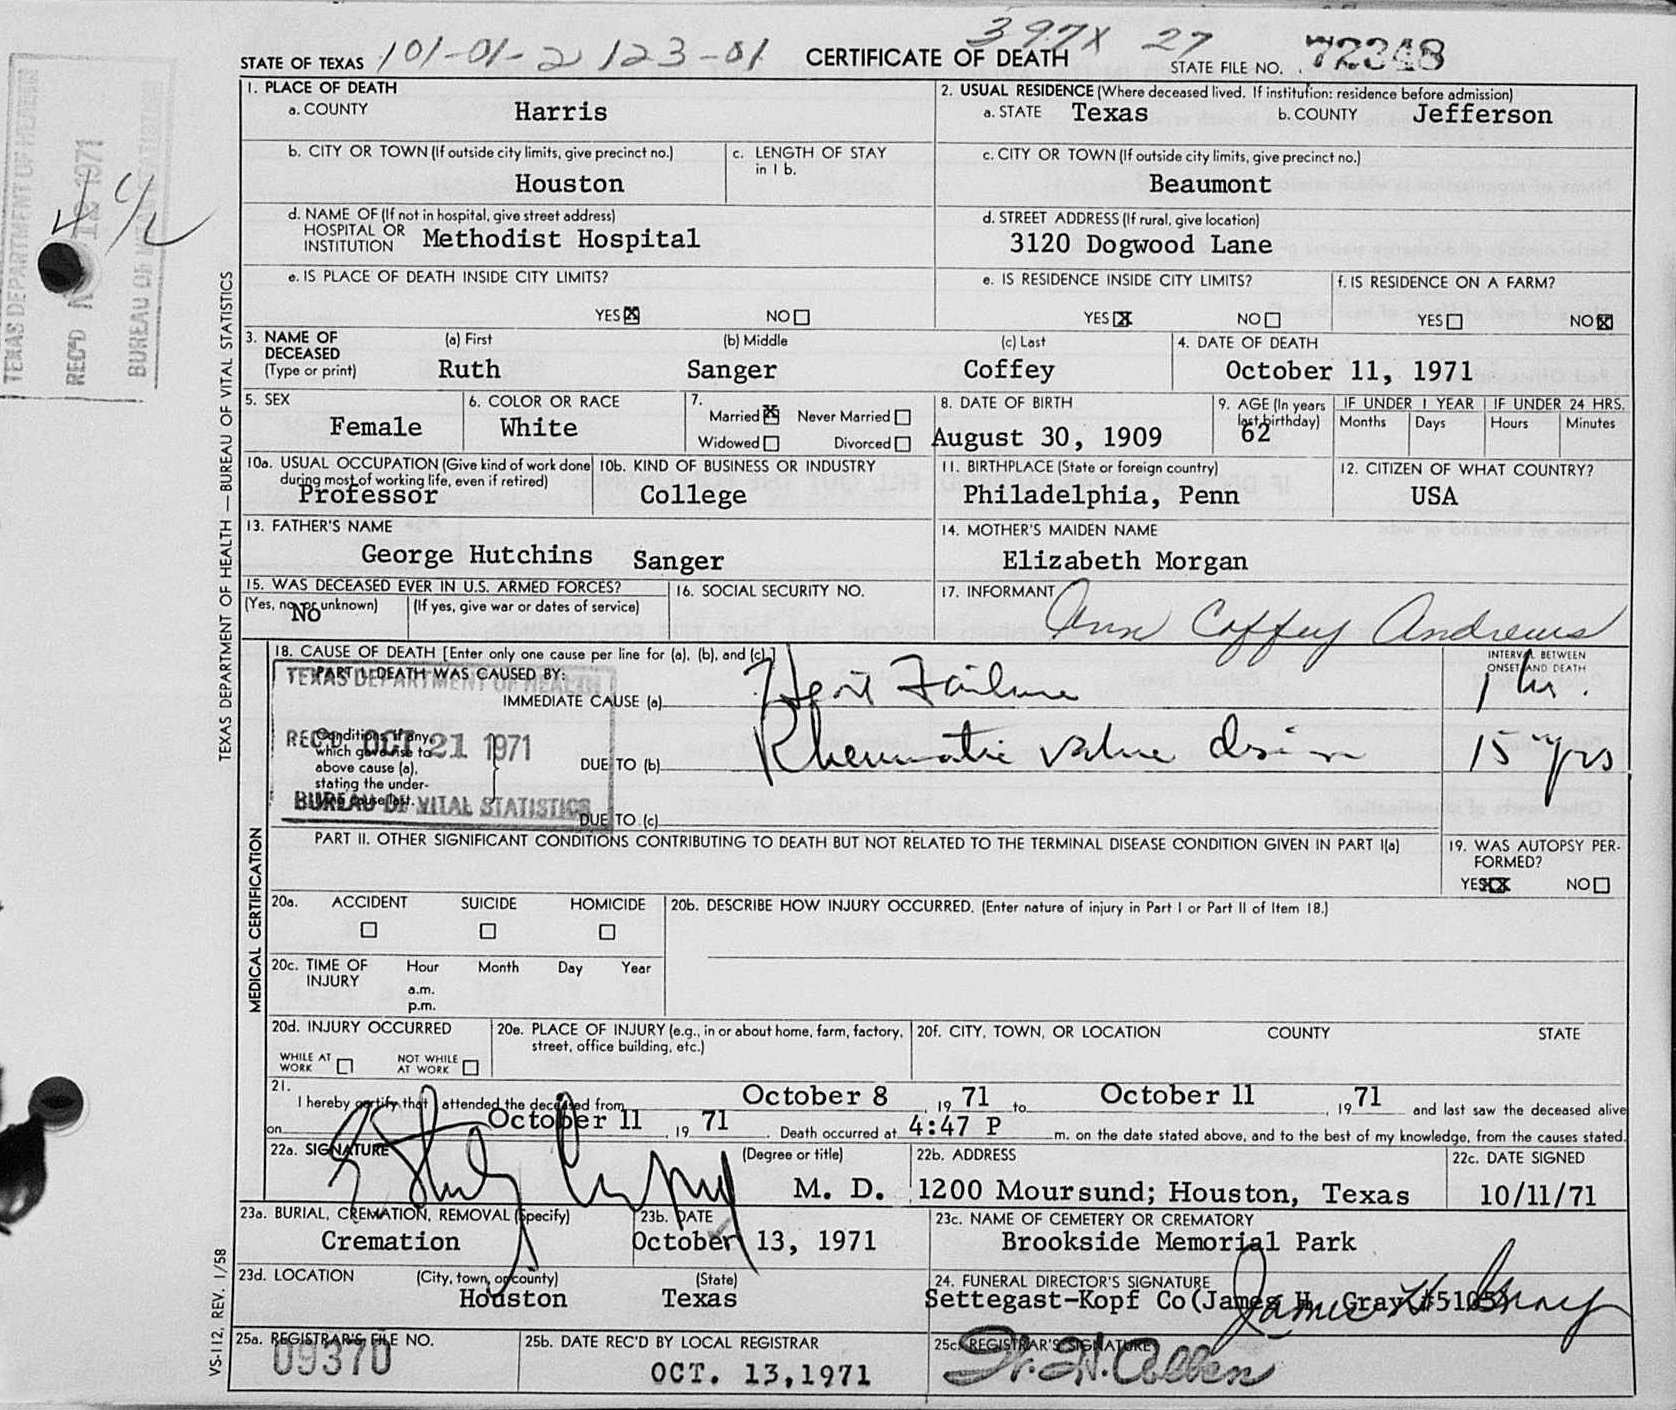 397X 27
STATE OF TEXAS 101-01-2 123-01 CERTIFICATE OF DEATH STATE FILE NO. 72348
1. PLACE OF DEATH
a. COUNTY Harris
2. USUAL RESIDENCE (Where deceased lived. If institution: residence before admission)
a. STATE Texas b. COUNTY Jefferson
b. CITY OR TOWN (If outside city limits, give precinct no.) Houston
c. LENGTH OF STAY in 1 b.
c. CITY OR TOWN (If outside city limits, give precinct no.)
Beaumont
d. NAME OF (If not in hospital, give street address)
HOSPITAL OR
INSTITUTION Methodist Hospital
d. STREET ADDRESS (If rural, give location)
3120 Dogwood Lane
e. IS PLACE OF DEATH INSIDE CITY LIMITS?
YES☒ NO☐
e. IS RESIDENCE INSIDE CITY LIMITS?
YES☒ NO☐
f. IS RESIDENCE ON A FARM?
YES☐ NO☒
3. NAME OF DECEASED (Type or print)
(a) First (b) Middle (c) Last
Ruth Sanger Coffey
4. DATE OF DEATH
October 11, 1971
5. SEX
Female
6. COLOR OR RACE
White
7.
Married☒ Never Married☐
Widowed☐ Divorced☐
8. DATE OF BIRTH
August 30, 1909
9. AGE (In years last birthday)
62
IF UNDER 1 YEAR IF UNDER 24 HRS.
Months Days Hours Minutes
10a. USUAL OCCUPATION (Give kind of work done during most of working life, even if retired)
Professor
10b. KIND OF BUSINESS OR INDUSTRY
College
11. BIRTHPLACE (State or foreign country)
Philadelphia, Penn
12. CITIZEN OF WHAT COUNTRY?
USA
13. FATHER'S NAME
George Hutchins Sanger
14. MOTHER'S MAIDEN NAME
Elizabeth Morgan
15. WAS DECEASED EVER IN U.S. ARMED FORCES?
(Yes, no, or unknown) (If yes, give war or dates of service)
No
16. SOCIAL SECURITY NO.
17. INFORMANT Ann Coffey Andrews
18. CAUSE OF DEATH [Enter only one cause per line for (a), (b), and (c).]
INTERVAL BETWEEN ONSET AND DEATH
PART I. DEATH WAS CAUSED BY:
IMMEDIATE CAUSE (a) Heart Failure 1 hr.
Conditions, if any, which gave rise to above cause (a), stating the underlying cause last.
DUE TO (b) Rheumatic valve 15 yrs
DUE TO (c)
TEXAS DEPARTMENT OF HEALTH
REC'D OCT 21 1971
BUREAU OF VITAL STATISTICS
PART II. OTHER SIGNIFICANT CONDITIONS CONTRIBUTING TO DEATH BUT NOT RELATED TO THE TERMINAL DISEASE CONDITION GIVEN IN PART I(a)
19. WAS AUTOPSY PERFORMED?
YES☒ NO☐
20a. ACCIDENT SUICIDE HOMICIDE
☐ ☐ ☐
20b. DESCRIBE HOW INJURY OCCURRED. (Enter nature of injury in Part I or Part II of Item 18.)
20c. TIME OF INJURY Hour Month Day Year
a.m.
p.m.
20d. INJURY OCCURRED
WHILE AT WORK ☐ NOT WHILE AT WORK ☐
20e. PLACE OF INJURY (e.g., in or about home, farm, factory, street, office building, etc.)
20f. CITY, TOWN, OR LOCATION COUNTY STATE
21.
I hereby certify that I attended the deceased from October 8, 1971 to October 11, 1971 and last saw the deceased alive
on October 11, 1971. Death occurred at 4:47 P m. on the date stated above, and to the best of my knowledge, from the causes stated.
22a. SIGNATURE (Degree or title)
M. D.
22b. ADDRESS
1200 Moursund; Houston, Texas
22c. DATE SIGNED
10/11/71
23a. BURIAL, CREMATION, REMOVAL (Specify)
Cremation
23b. DATE
October 13, 1971
23c. NAME OF CEMETERY OR CREMATORY
Brookside Memorial Park
23d. LOCATION (City, town, or county) (State)
Houston Texas
24. FUNERAL DIRECTOR'S SIGNATURE
Settegast-Kopf Co (James H. Gray #5105)
James H Gray
25a. REGISTRAR'S FILE NO.
09370
25b. DATE REC'D BY LOCAL REGISTRAR
OCT. 13,1971
25c. REGISTRAR'S SIGNATURE
TEXAS DEPARTMENT OF HEALTH — BUREAU OF VITAL STATISTICS
MEDICAL CERTIFICATION
VS-112, REV. 1/58
TEXAS DEPARTMENT OF HEALTH
REC'D 1971
BUREAU OF